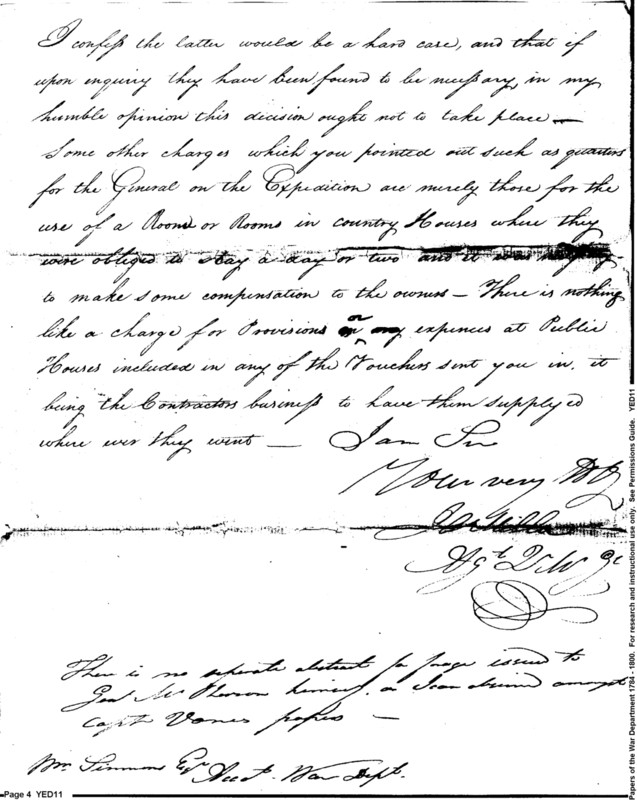 I confess the latter would be a hard case, and that if
upon inquiry they have been found to be necessary, in my
humble opinion this decision ought not to take place —
Some other charges which you pointed out such as quarters
for the General on the Expedition are merely those for the
use of a Room or Rooms in country Houses where they
were obliged to stay a day or two and it was
to make some compensation to the owners — There is nothing
like a charge for Provisions or expences at Public
Houses included in any of the Vouchers sent you in. it
being the Contractors business to have them supply'd
where ever they went — I am Sir
Your very
Agt
There is no separate abstract for forage issued to
Genl McPherson himself, as I can discover amongst
Capt Vances papers —
Wm Simmons Esqr Acct. War Dept.
Page 4 YED11
Papers of the War Department 1784 - 1800. For research and instructional use only. See Permissions Guide. YED11